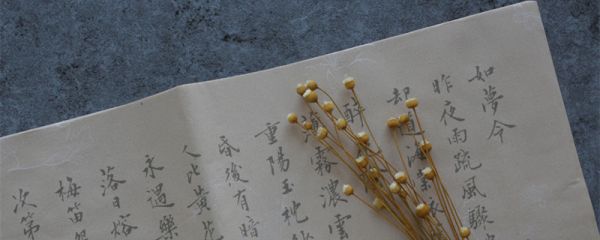 如夢令
昨夜雨疏風驟
却道海棠
醉花
薄霧濃雲
重陽玉枕
昏後有暗
人比黃花
永遇樂
落日熔
梅笛
次第